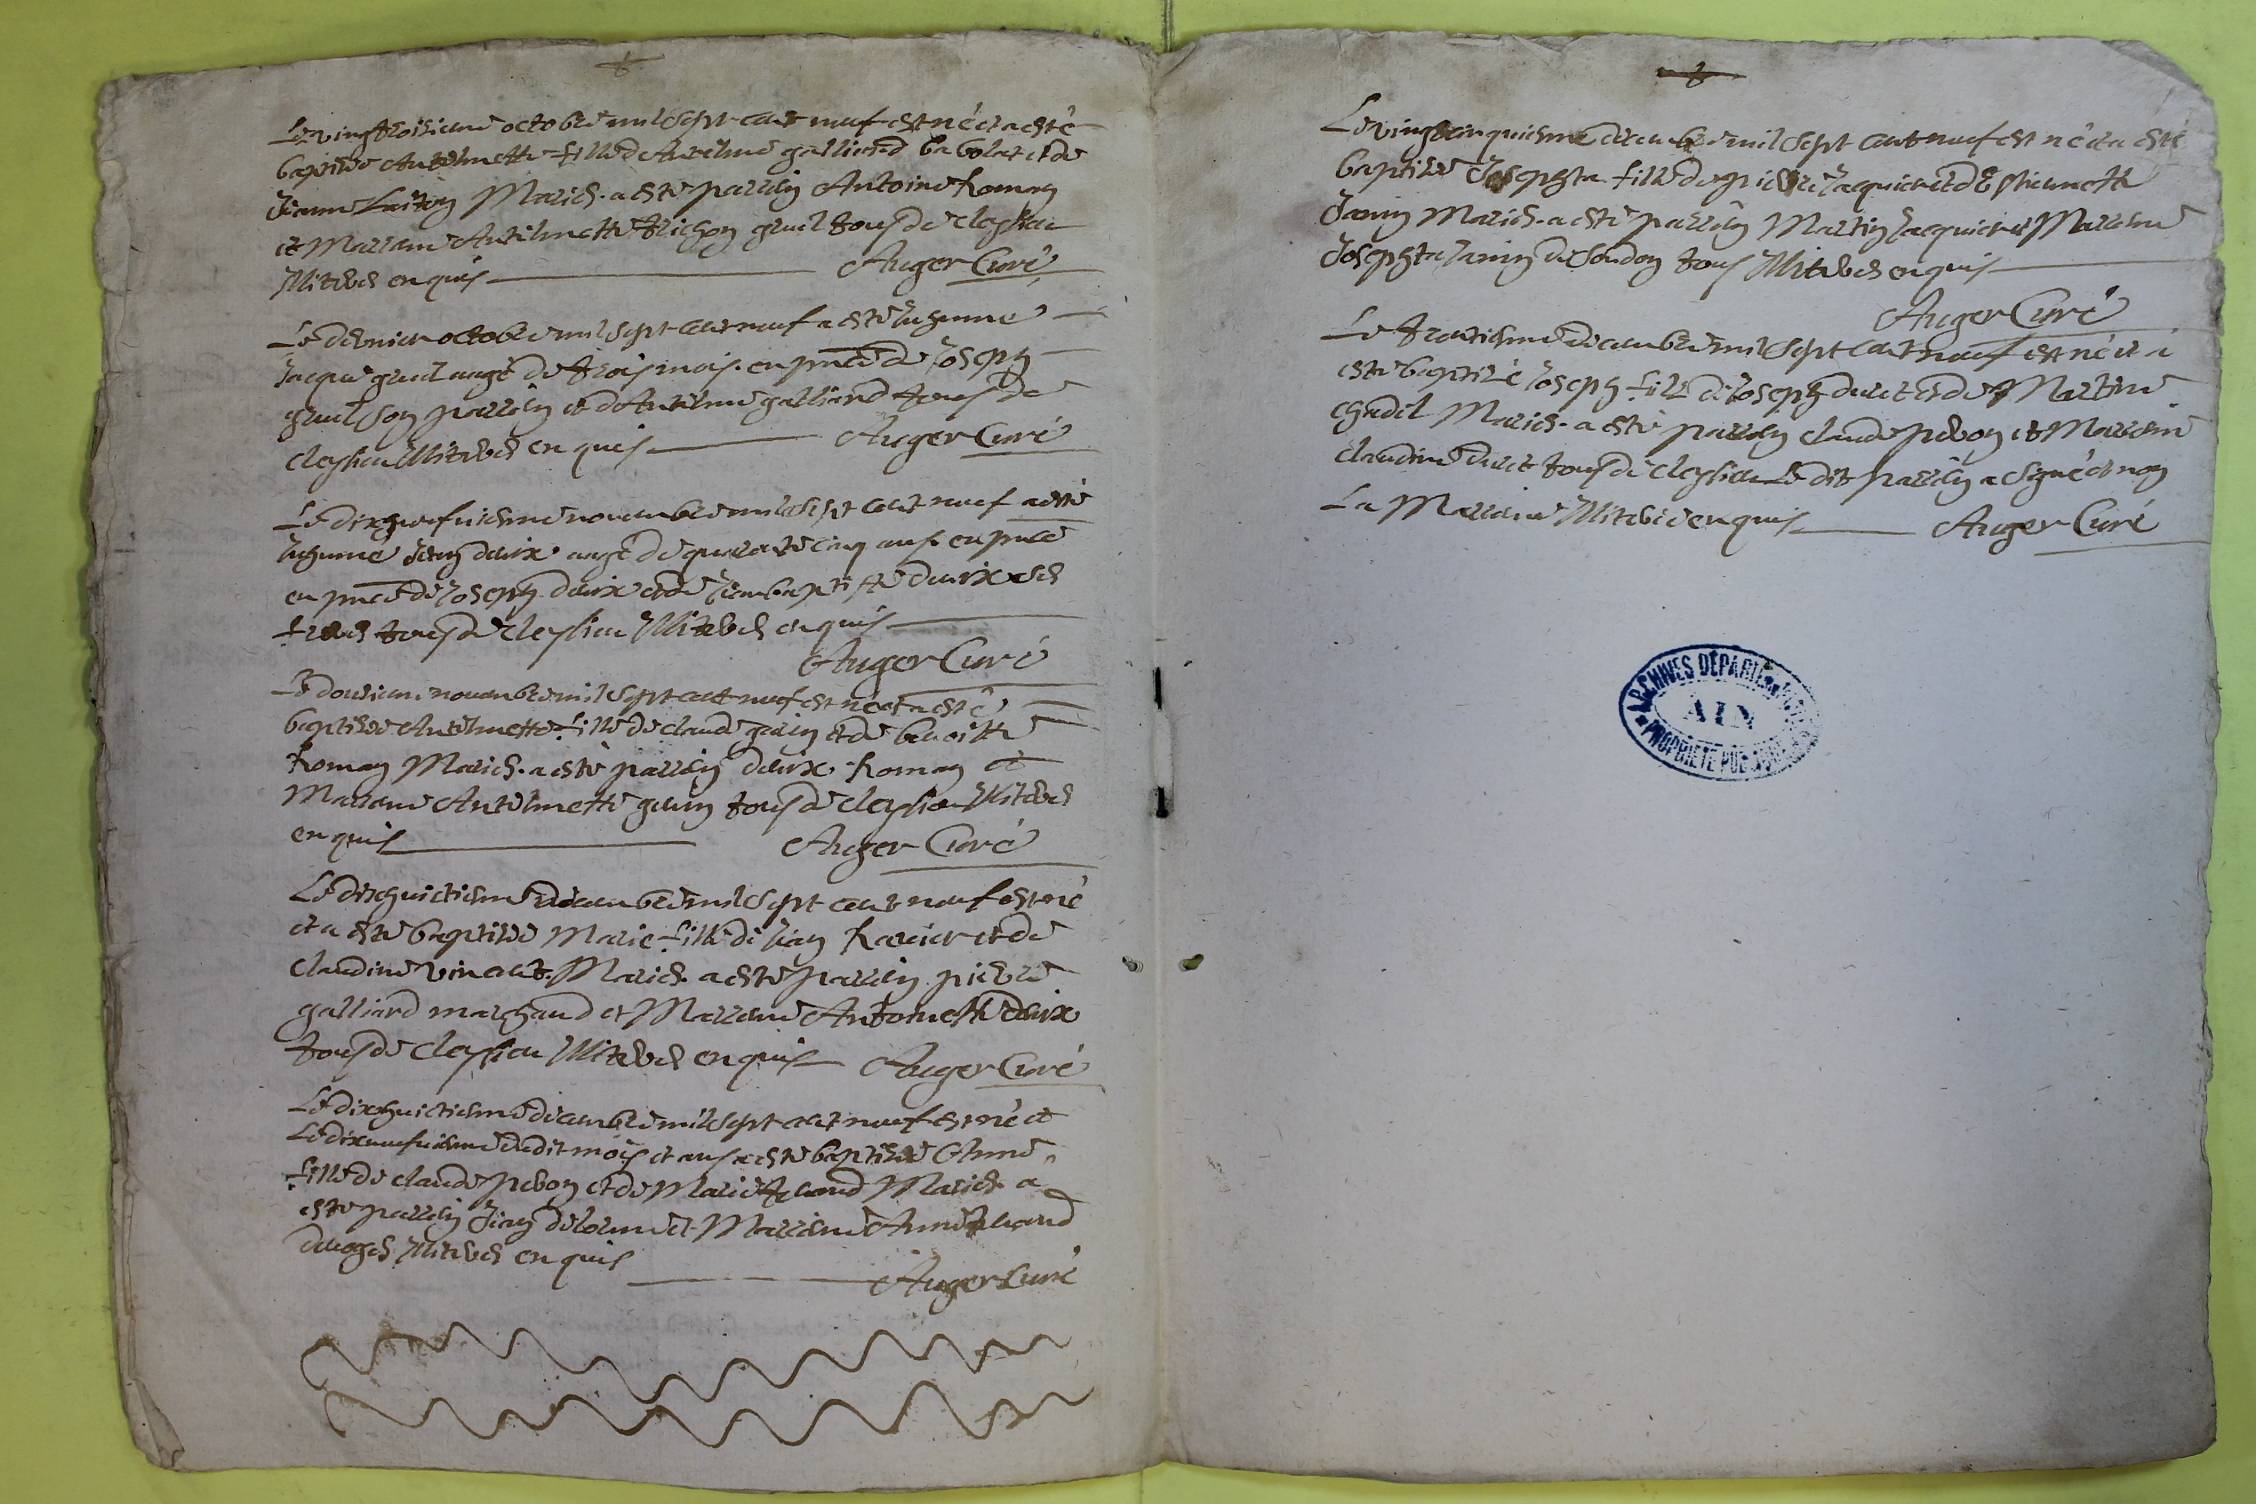 Le vingtroisieme octobre mil sept cent neuf est né et a esté
baptisée Antelmette fille d'Antelme galliand babolat et de
Jeanne Mariés. a esté parrein Antoine Roman
et Marraine Antelmette gruel tous de cleysieu
Illiterés enquis Auger Curé
Le dernier octobre mil sept cent neuf a esté inhumé
Jacque gruel aagé de trois mois. en pnce de Joseph
gruel son parrein et d'Antelme galliand tous de
cleysieu Illiterés enquis Auger Curé
Le dixneufuiesme nouembre mil sept cent neuf a esté
inhumé Jean aagé de quarante cinq ans. en pnce
en pnce de Joseph et de Jean baptiste ses
freres tous de cleysieu Illiterés enquis
Auger Curé
Le nouembre mil sept cent neuf est né et a esté
baptisée Antelmette fille de claude et de benoitte
Roman Mariés. a esté parrein Roman et
Marraine Antelmette tous de cleysieu Illiterés
enquis Auger Curé
Le dixhuictiesme decembre mil sept cent neuf est né
et a esté baptisée Marie fille de Jean Rauier et de
claudine vincent. Mariés. a esté parrein pierre
galliand marchand et Marraine Antoinette
tous de cleysieu Illiterés enquis Auger Curé
Le dixhuictiesme decembre mil sept cent neuf est né et
Le dixneufuiesme dudit mois et an a esté baptisée Anne
fille de claude peuon et de Marie Mariés a
esté parrein Jean delorme et Marraine Anne
Illiterés enquis
Auger Curé
Le vingtcinquiesme decembre mil sept cent neuf est né et a esté
baptisée Josephta fille de pierre Jacquier et d'Estiennette
Janin Mariés. a esté parrein Martin Jacquier et Marraine
Josephta Janin de Soudon tous Illiterés enquis
Auger Curé
Le trentiesme decembre mil sept cent neuf est né et a
esté baptisé Joseph fils de Joseph duret et de Martine
Mariés. a esté parrein claude peuon et Marraine
claudine duret tous de cleysieu Le dit parrein a signé et non
La Marraine Illiterée enquis Auger Curé
ARCHIVES DÉPARTEMENTALES
AIN
PROPRIÉTÉ PUBLIQUE